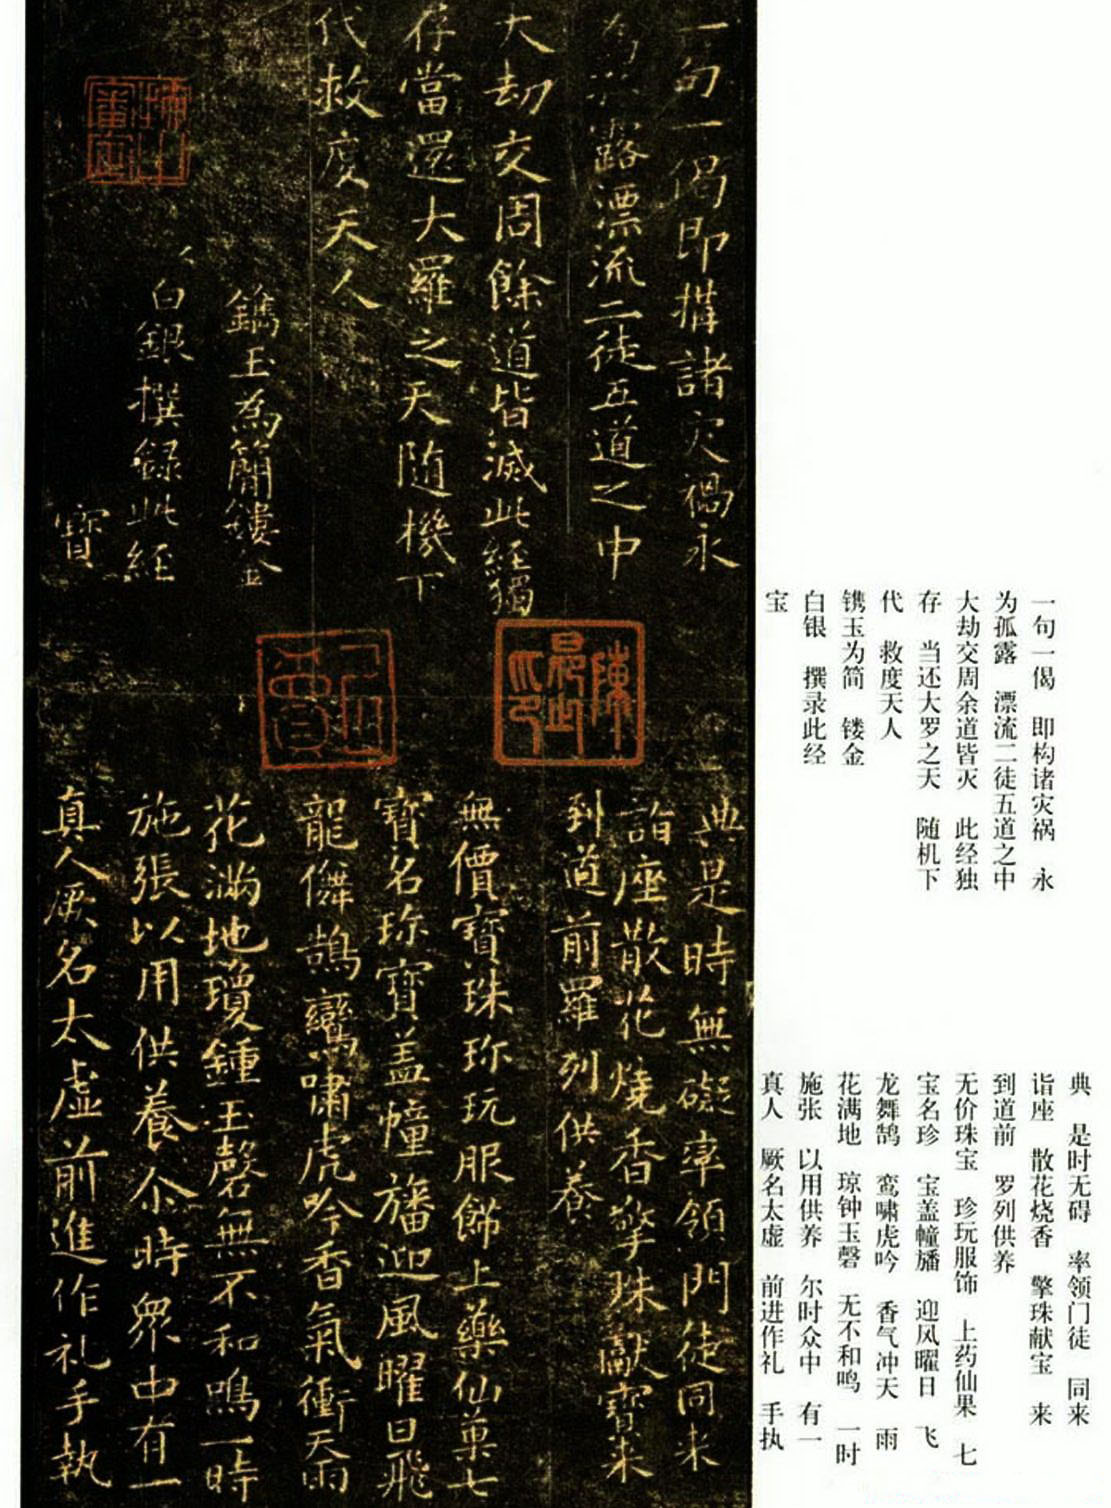 一句一偈即構諸灾禍永
為孤露漂流二徒五道之中
大劫交周餘道皆滅此經獨
存當還大羅之天隨機下
代救度天人
鐫玉為簡鏤金
白銀撰録此経
寶
典是時無礙率領門徒同来
詣座散花燒香擎珠獻寶来
到道前羅列供養
無價寶珠珎玩服飾上藥仙菓七
寶名珎寶盖幢旛迎風曜日飛
龍儛鵠鸞嘯虎吟香氣衝天雨
花滿地瓊鍾玉磬無不和鳴一時
施張以用供養尒時衆中有一
真人厥名太虛前進作礼手執
一句一偈 即构诸灾祸 永
为孤露 漂流二徒五道之中
大劫交周余道皆灭 此经独
存 当还大罗之天 随机下
代 救度天人
镌玉为简 镂金
白银 撰录此经
宝
典 是时无碍 率领门徒 同来
诣座 散花烧香 擎珠献宝 来
到道前 罗列供养
无价珠宝 珍玩服饰 上药仙果 七
宝名珍 宝盖幢旛 迎风曜日 飞
龙舞鹄 鸾啸虎吟 香气冲天 雨
花满地 琼钟玉磬 无不和鸣 一时
施张 以用供养 尔时众中 有一
真人 厥名太虚 前进作礼 手执